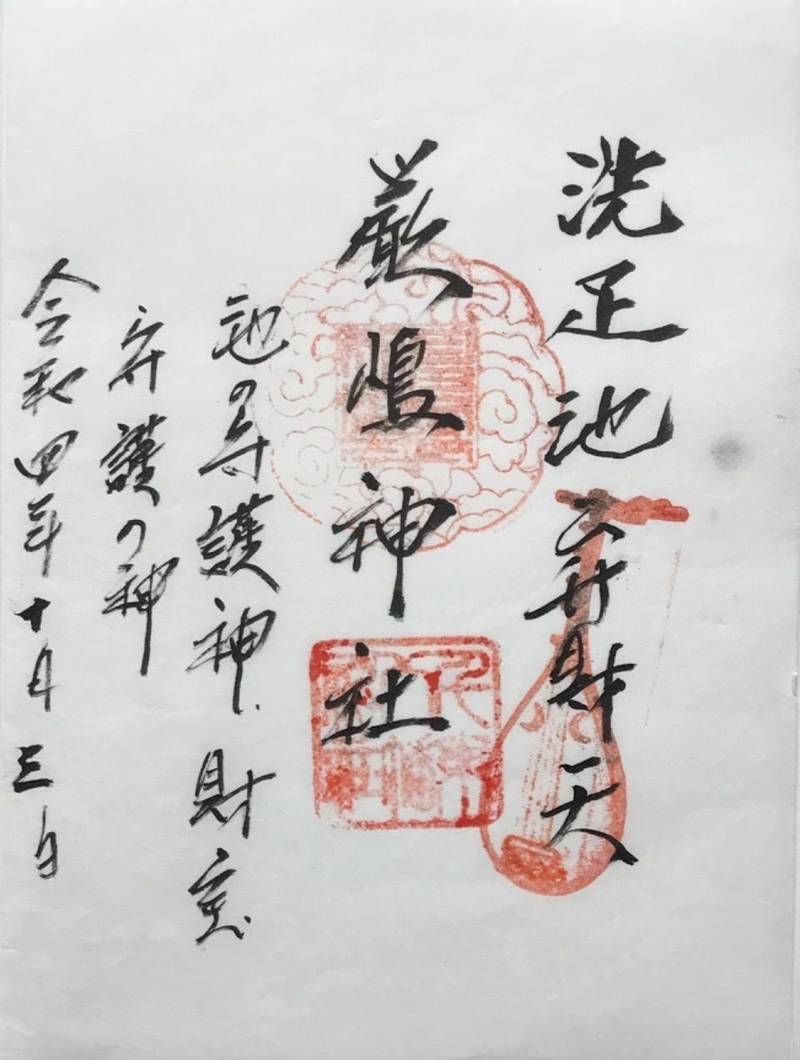 洗足池弁財天
厳嶋神社
池の守護神、財宝
守護の神
令和四年十月三日